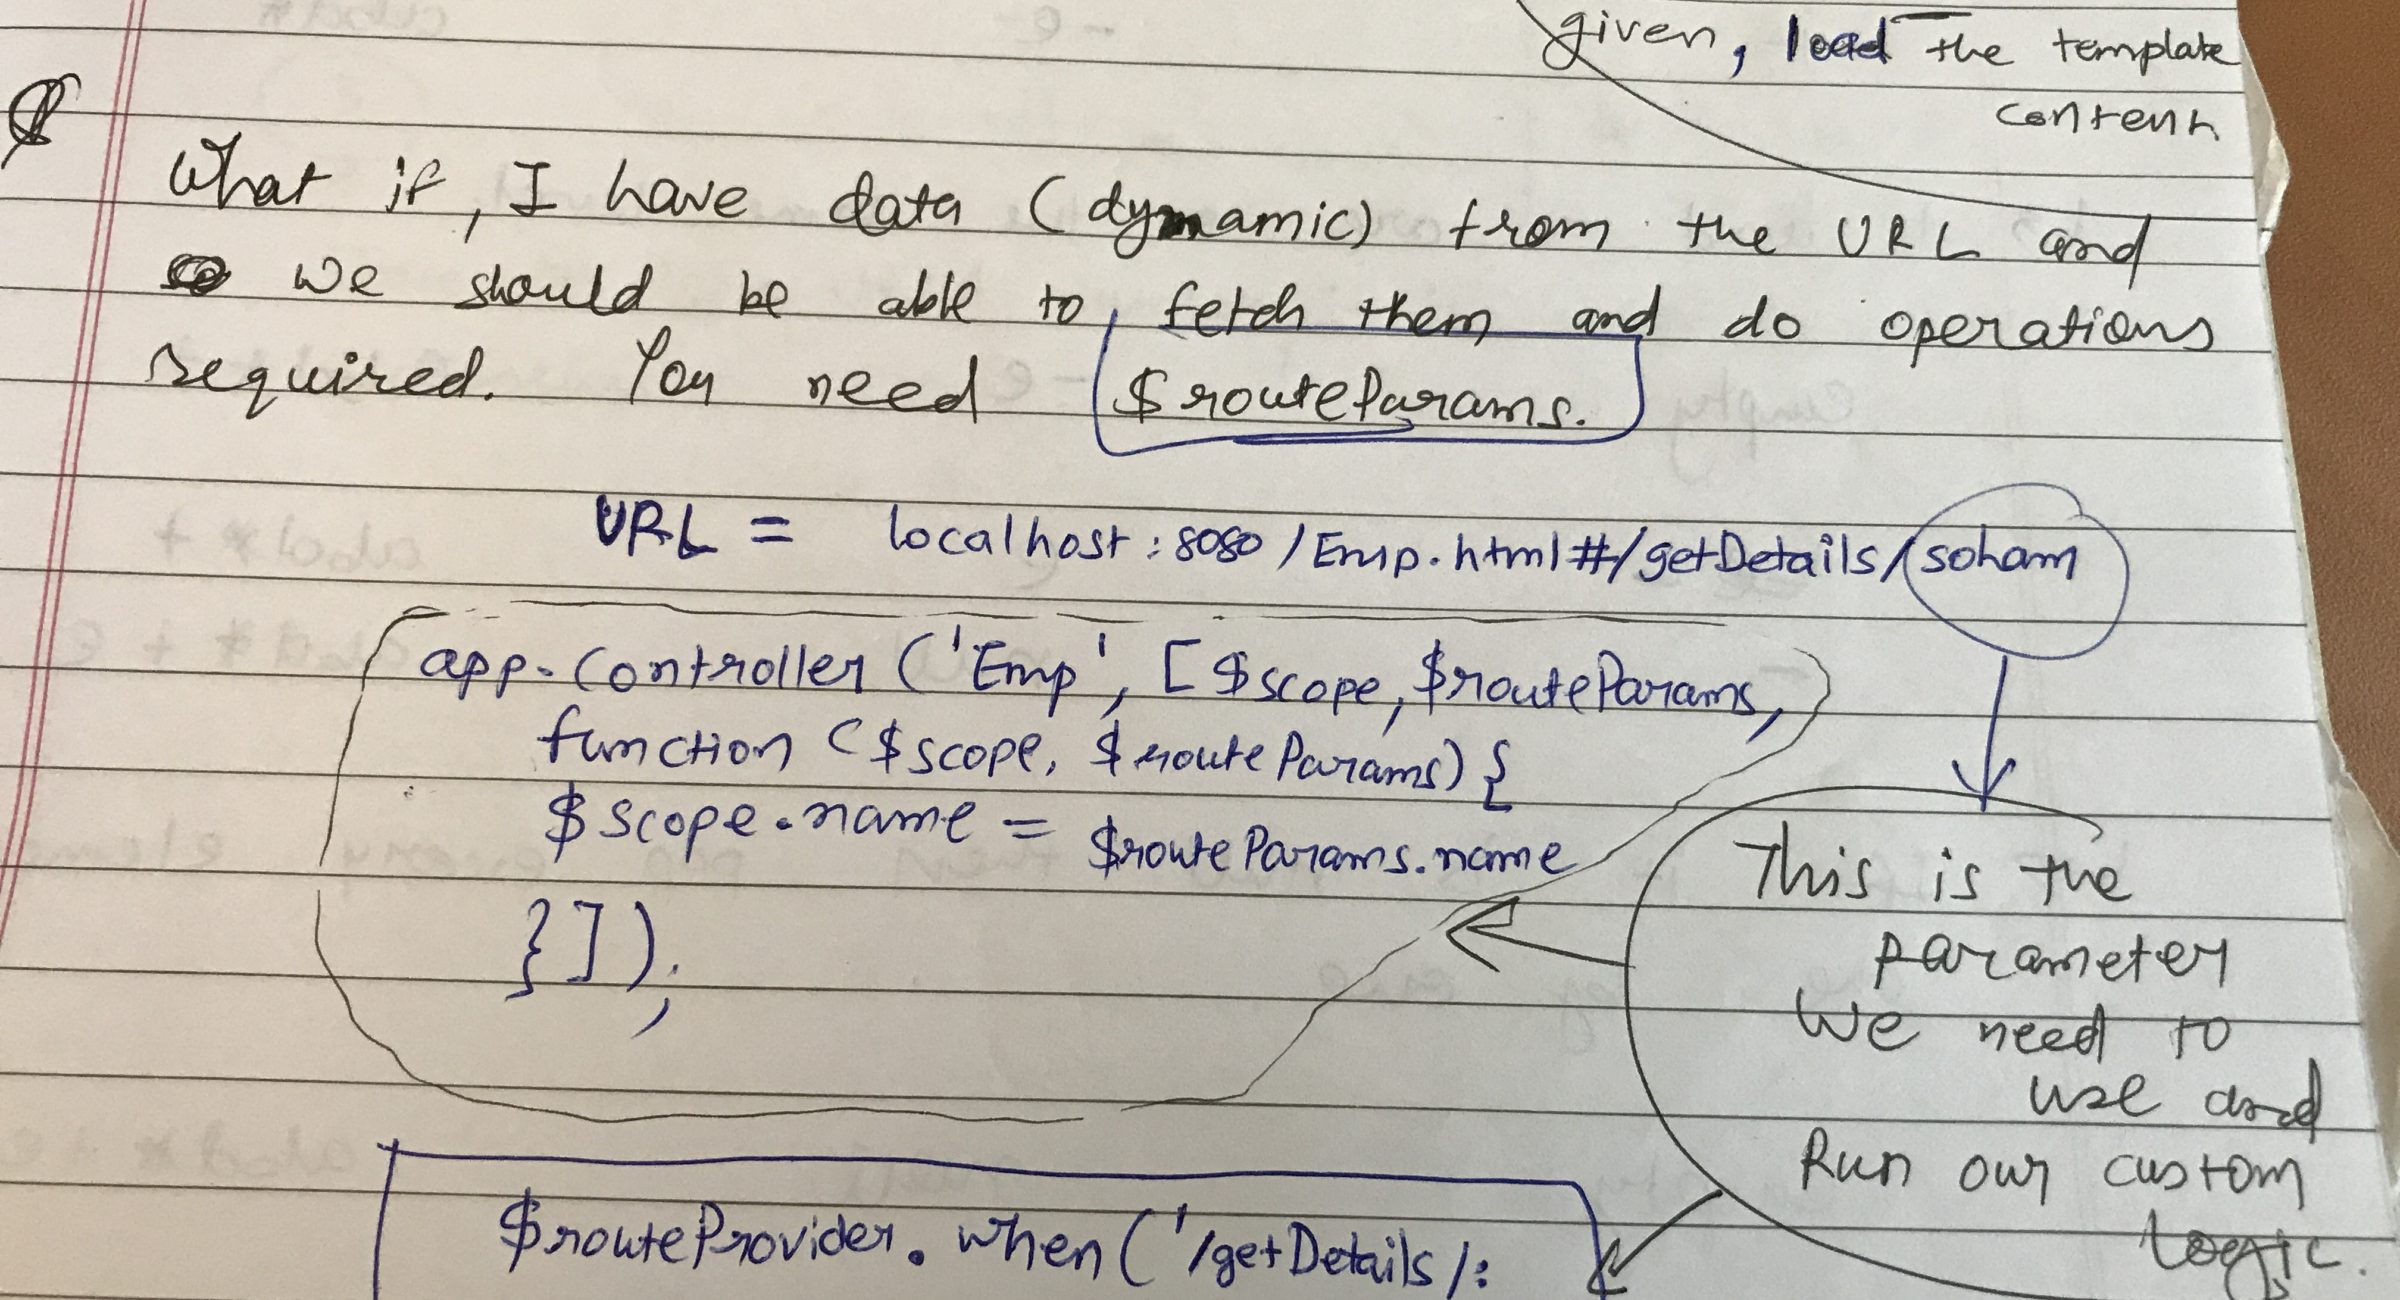 given, load the template
content
What if, I have data (dynamic) from the URL and
we should be able to fetch them and do operations
required. You need $routeParams.
URL = localhost:8080/Emp.html#/getDetails/soham
app.controller ('Emp', [$scope, $routeParams,
function ($scope, $routeParams) {
$scope.name = $routeParams.name
}]);
This is the
parameter
we need to
use and
Run our custom
logic.
$routeProvider.when('/getDetails/: